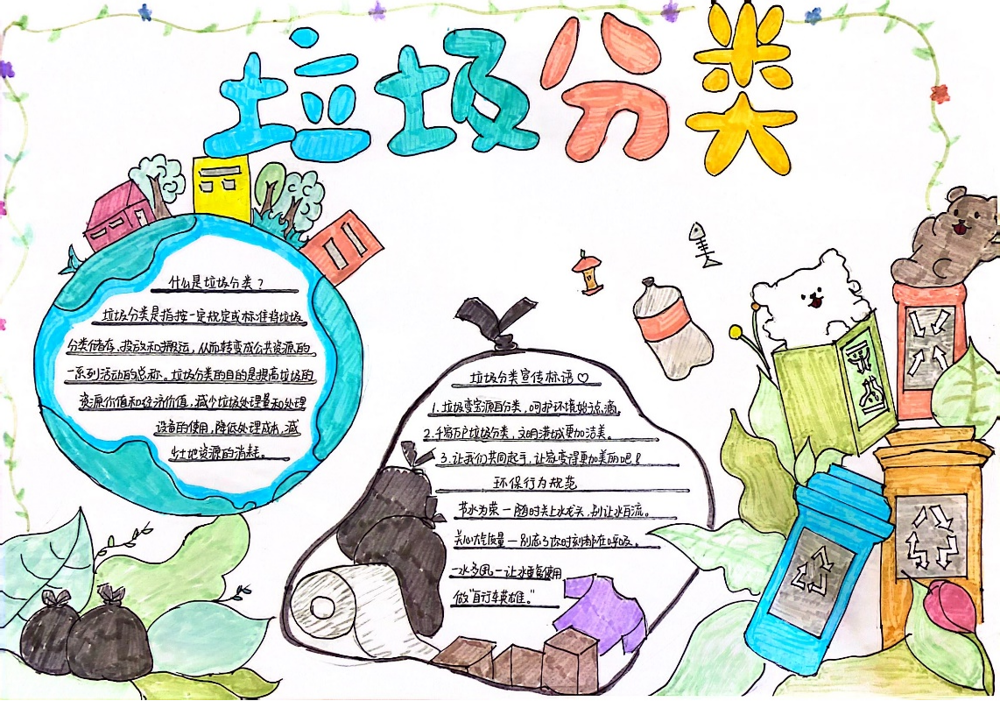 垃圾分类
什么是垃圾分类？
垃圾分类是指按一定规定或标准将垃圾
分类储存、投放和搬运，从而转变成公共资源的
一系列活动的总称。垃圾分类的目的是提高垃圾的
资源价值和经济价值，减少垃圾处理量和处理
设备的使用，降低处理成本，减
少土地资源的消耗。
垃圾分类宣传标语♡
1.垃圾变宝源自分类，呵护环境始于点滴。
2.千家万户垃圾分类，文明港城更加洁美。
3.让我们共同起手，让家变得更加美丽吧！
环保行为规范
节水为荣—随时关上水龙头，别让水白流。
关心大气质量—别忘了你时刻都在呼吸。
一水多用—让水重复使用
做“自行车英雄。”